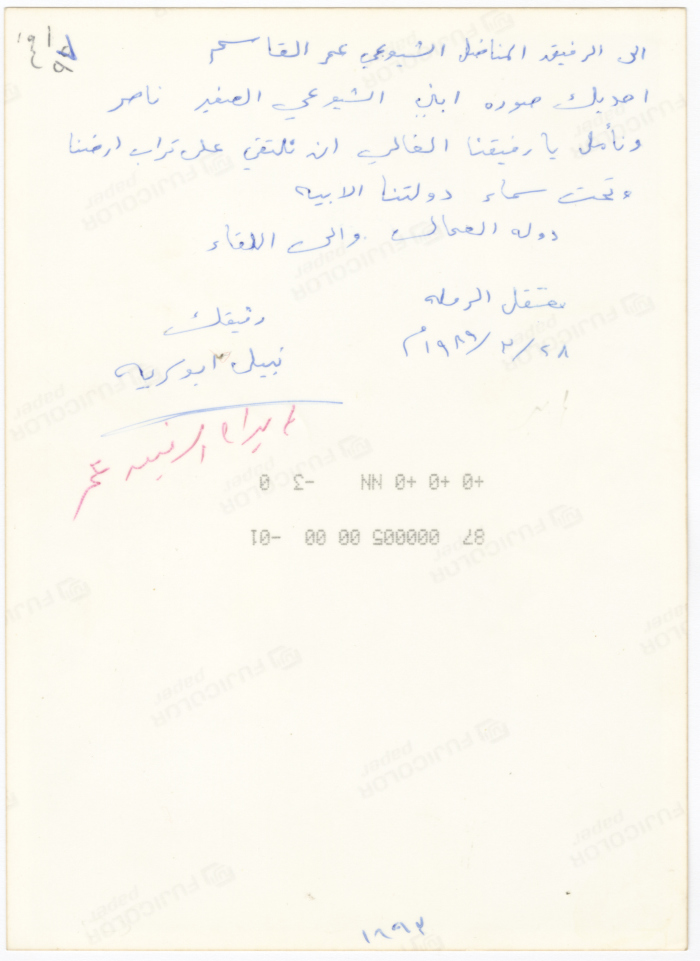 الى الرفيق المناضل الشيوعي عمر القاسم
اهديك صوره ابني الشيوعي الصغير ناصر
ونأمل يا رفيقنا الغالي ان نلتقي على تراب ارضنا
وتحت سماء دولتنا الابيه
دوله العمال والى اللقاء
معتقل الرمله
٢٨/٢/١٩٨٩م
رفيقك
نبيل ابو سريه
الرفيق عمر
+0 +0 +0 NN -3 0
87 000005 00 00 -01
١٨٩٣
FUJICOLOR
paper